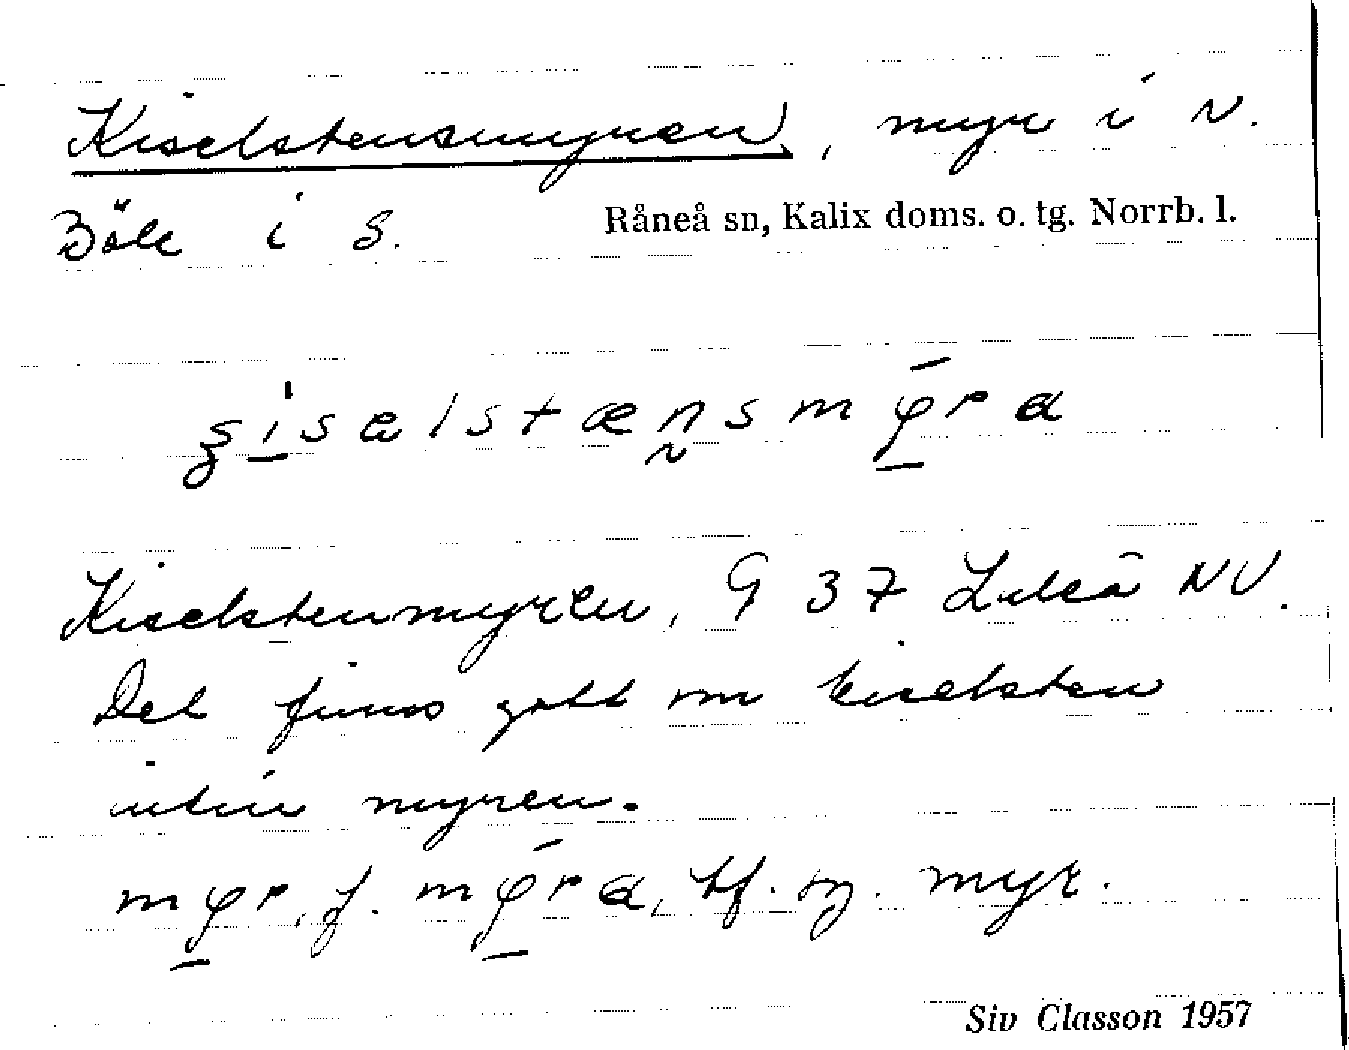 Kiselstensmyren, myr i N.
Böle i S.
Råneå sn, Kalix doms. o. tg. Norrb. l.
Kiselstenmyren, 9 37 Luleå NV.
Det finns gott om kiselsten
intill myren.
f. bf. sg. myr.
Siv Classon 1957